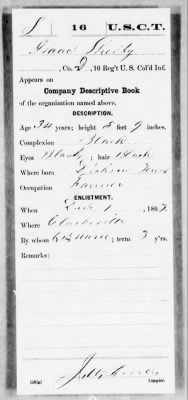 S | 16 | U.S.C.T.
Isaac Shelby
, Co. D, 16 Reg't U.S. Col'd Inf.
Appears on
Company Descriptive Book
of the organization named above.
DESCRIPTION.
Age 34 years; height 5 feet 9 inches.
Complexion Black
Eyes Black; hair Black
Where born Dickson Tenn
Occupation Farmer
ENLISTMENT.
When Dec 1, 1863.
Where Clarksville
By whom; term 3 y'rs.
Remarks:
Copyist.